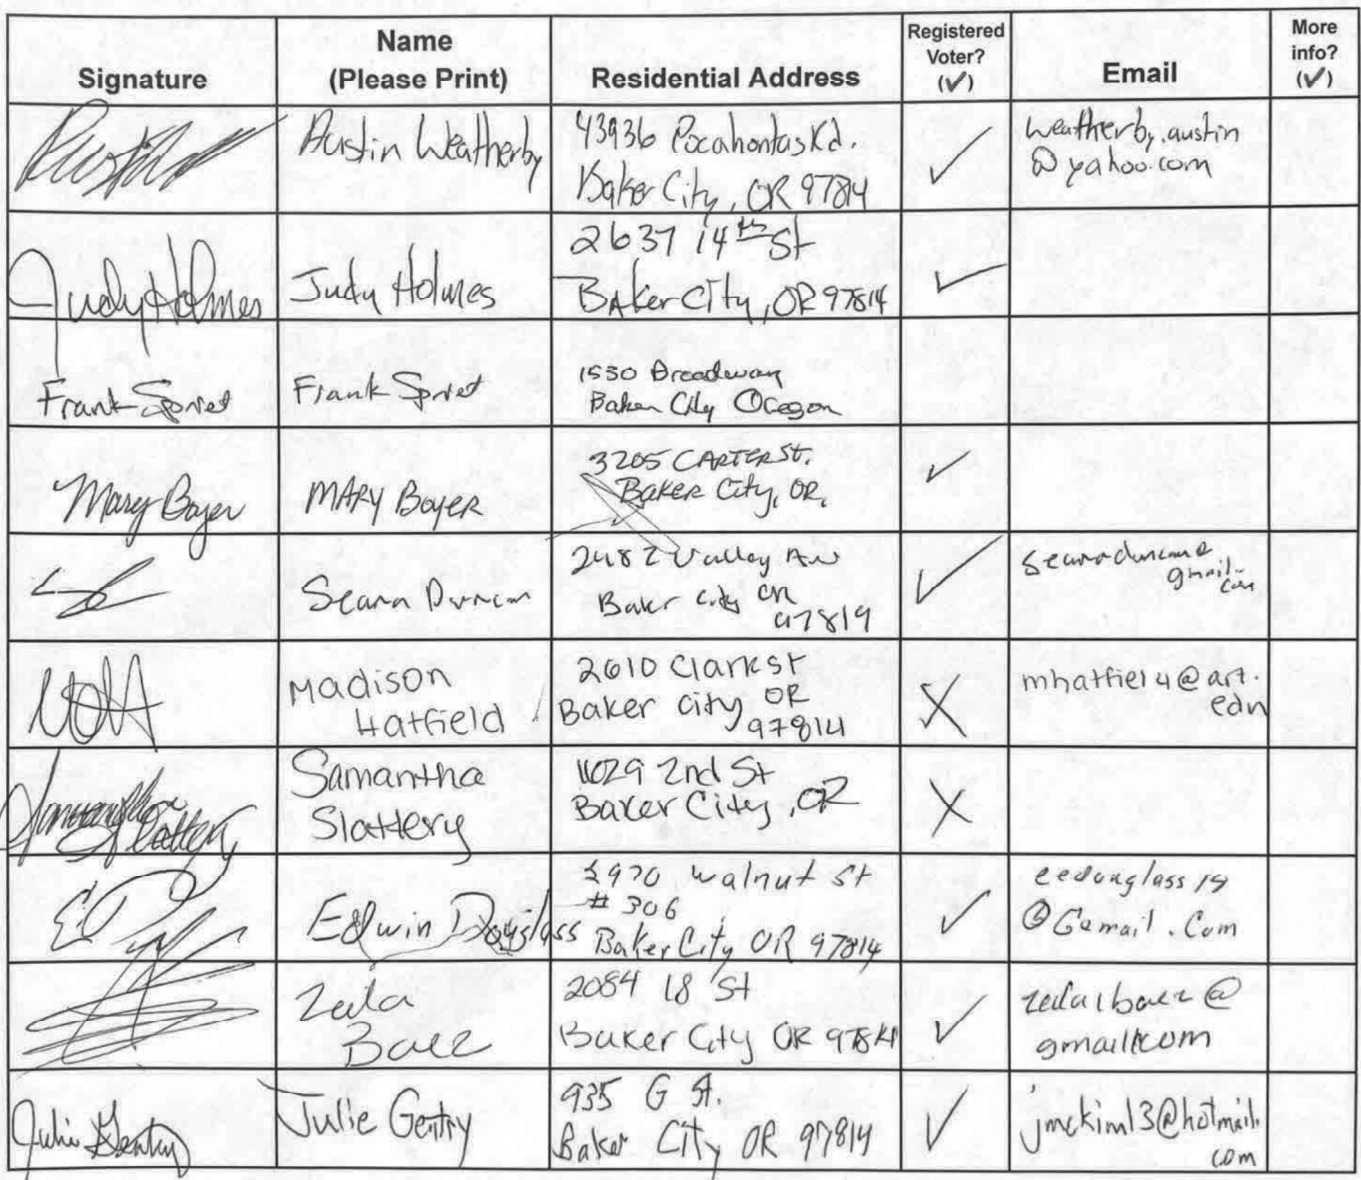 Signature
Name
(Please Print)
Residential Address
Registered
Voter?
(✓)
Email
More
info?
(✓)
Austin Weatherby
43936 Pocahontas Rd.
Baker City, OR 97814
✓
weatherby.austin
@yahoo.com
Judy Holmes
Judy Holmes
2637 14th St
Baker City, OR 97814
✓
Frank
Frank
1550 Broadway
Baker City Oregon
Mary Boyer
MARY BOYER
3205 CARTER ST.
BAKER City, OR,
✓
Seara Duncan
2482 Valley Av
Baker city OR
97814
✓
gmail.
com
Madison
Hatfield
2610 Clark st
Baker city OR
97814
X
mhatfiel4@art.
edu
Samantha
Slattery
Samantha
Slattery
1029 2nd St
Baker City, OR
X
Edwin Douglass
2920 walnut St
# 306
Baker City OR 97814
✓
eedouglass19
@Gemail.Com
Zeila
Baez
2084 18 St
Baker City OR 97814
✓
@
gmail.com
Julie Gentry
Julie Gentry
935 G St.
Baker City OR 97814
✓
jmckim13@hotmail.
com